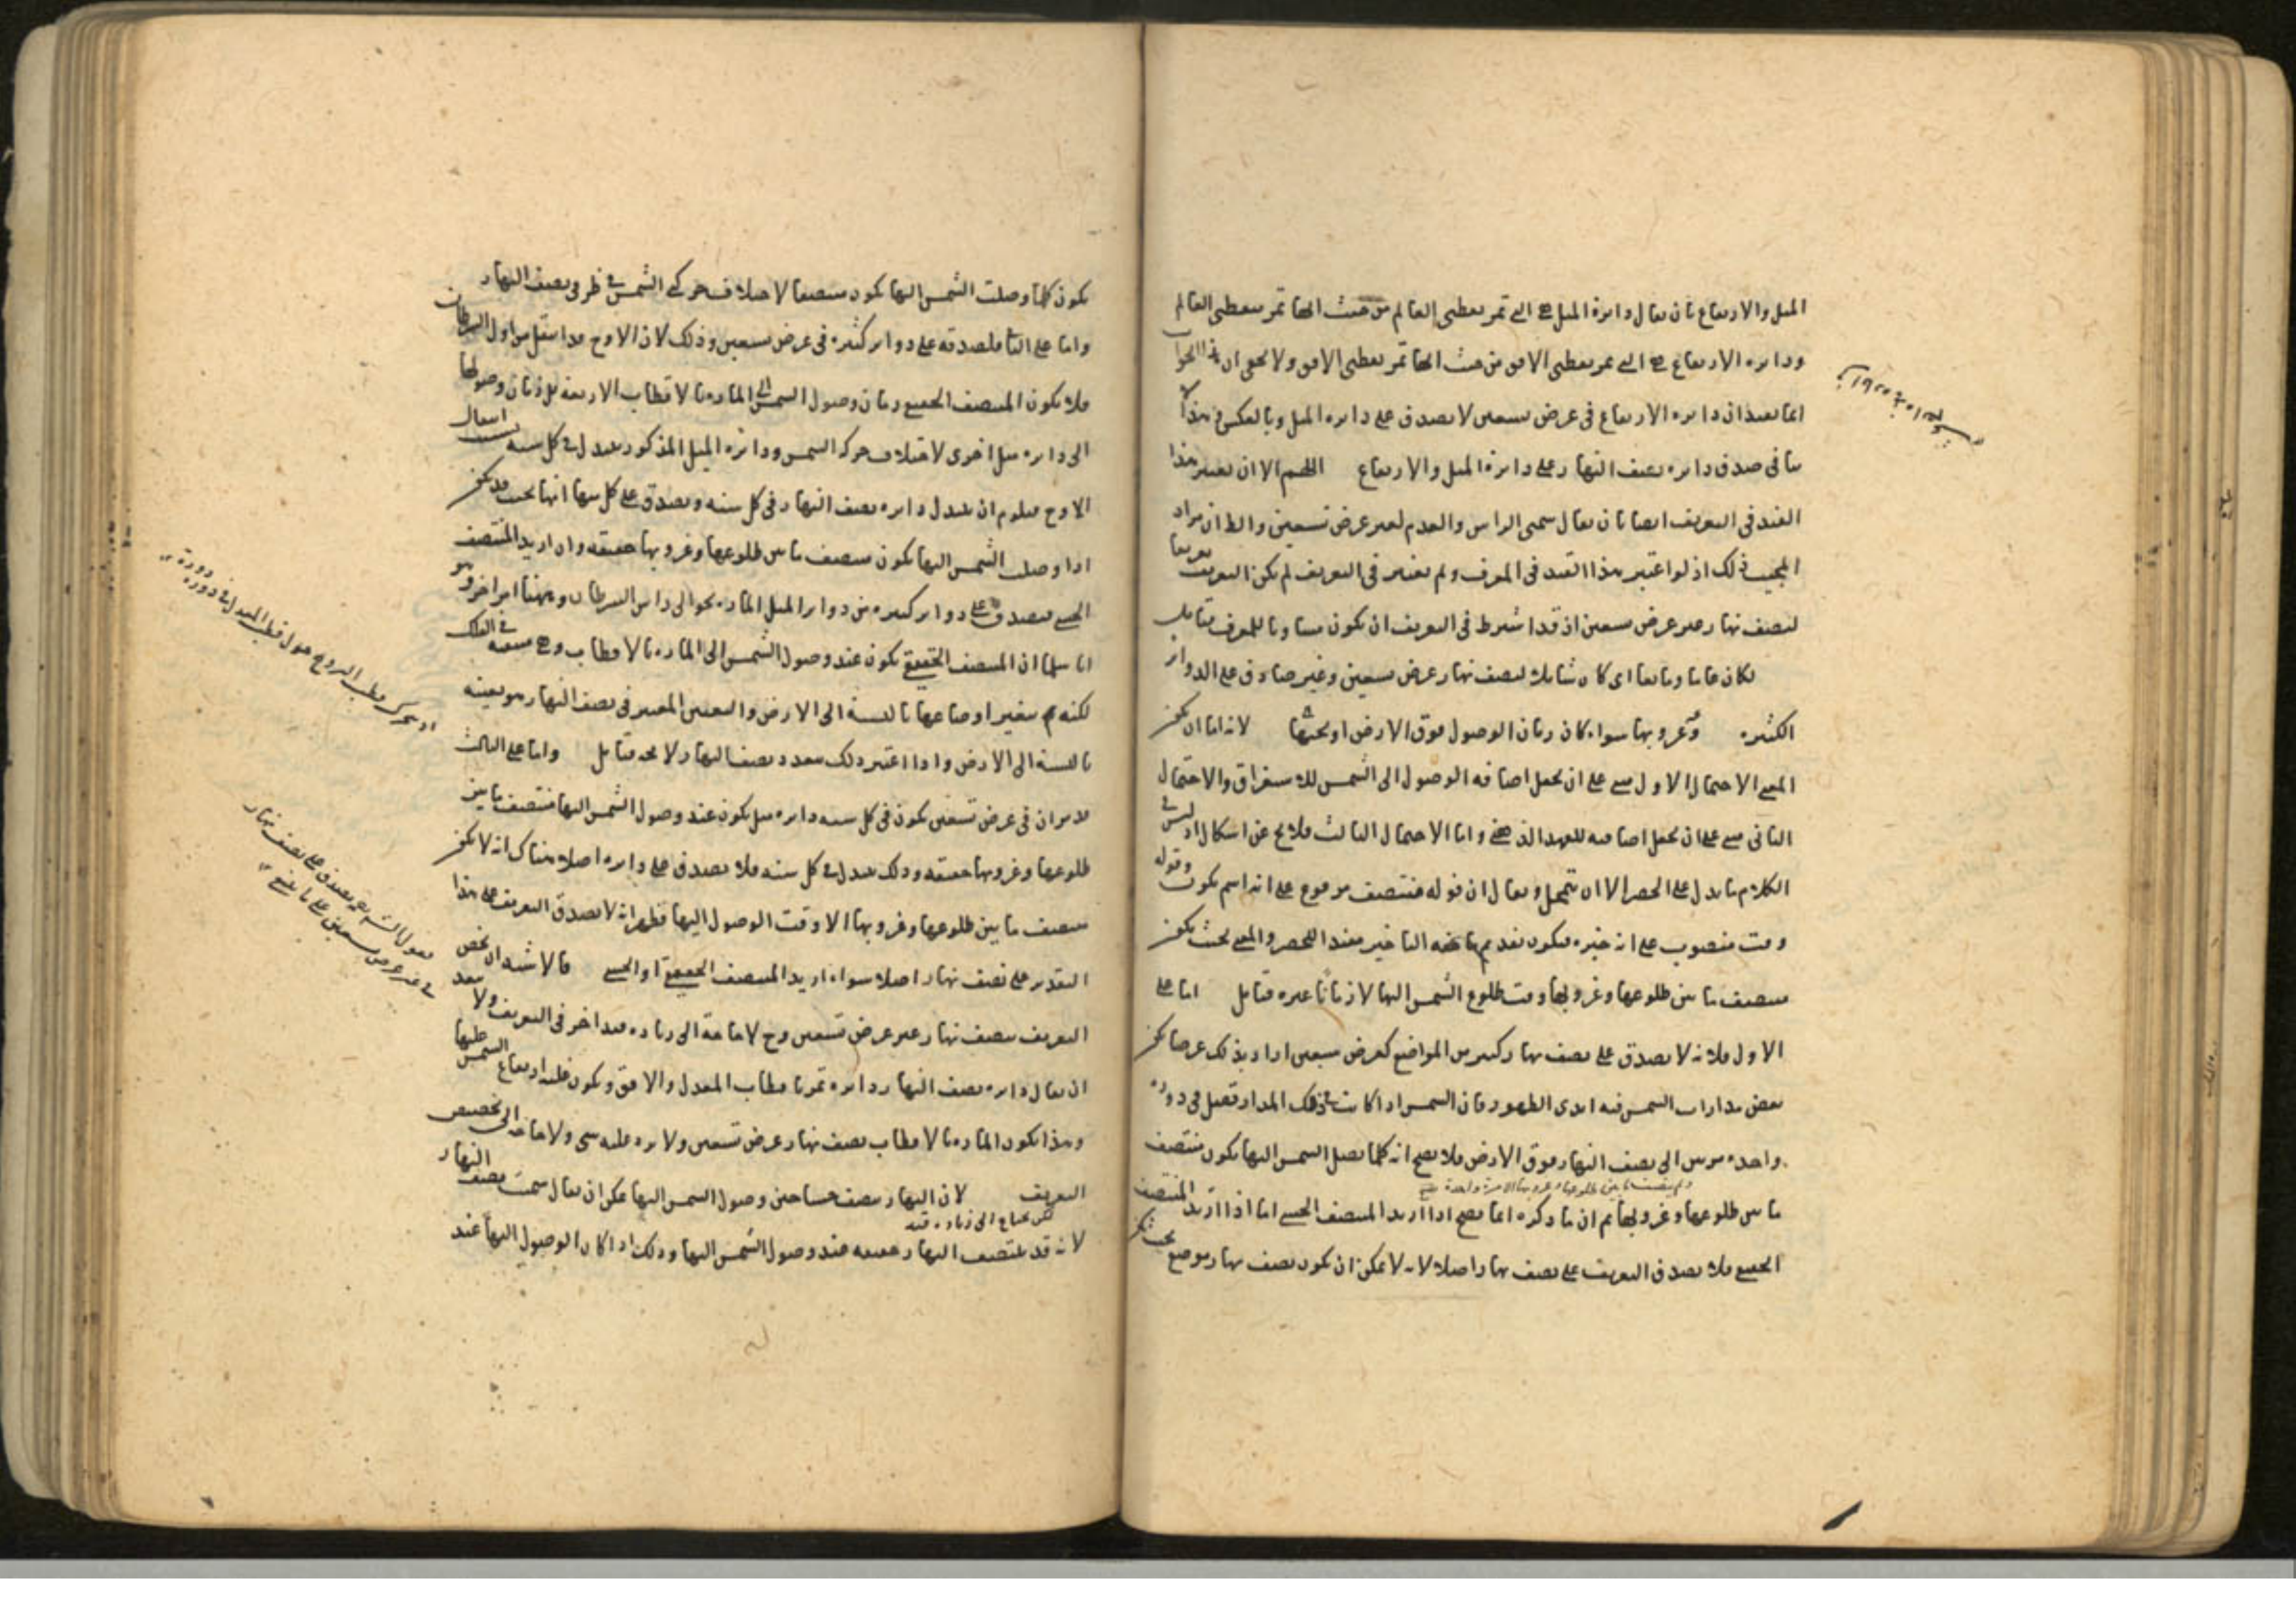 الميل والارتفاع بان يقال دايرة الميل هي التي تمر بقطبي العالم من حيث انها تمر بقطبي العالم
ودايرة الارتفاع هي التي تمر بقطبي الافق من حيث انها تمر بقطبي الافق ولا يخفى ان هذا الجواب
انما يفيد ان دايرة الارتفاع في عرض تسعين لا يصدق على دايرة الميل وبالعكس في هذا
ما في صدق دايرة نصف النهار على دايرة الميل والارتفاع اللهم الا ان يعتبر هذا
القيد في التعريف ايضا بان يقال سمتي الراس والقدم لغير عرض تسعين والظ ان مراد
المجيب ذلك اذ لو اعتبر هذا القيد في المعرف ولم يعتبر في التعريف لم يكن التعريف تعريفا
لنصف نهار غير عرض تسعين اذ قد اشترط في التعريف ان يكون مساويا للمعرف فتامل
لكان عاما ومانعا اي كان شاملا لنصف نهار عرض تسعين وغير صادق على الدواير
الكثيرة وغروبها سواء كان زمان الوصول فوق الارض او تحتها لانه اما ان يكون
المعنى الاحتمال الاول مبني على ان يجعل اضافة الوصول الى الشمس للاستغراق والاحتمال
الثاني مبني على ان يجعل اضافته للعهد الذهني واما الاحتمال الثالث فلا يخ عن اشكال اذ ليس في
الكلام ما يدل على الحصر الا ان يتمحل ويقال ان قوله منتصف مرفوع على انه اسم يكون وقوله
وقت منصوب على انه خبره فيكون تقديم ما حقه التاخير مفيدا للحصر والمعنى بحيث يكون
منتصف ما بين طلوعها وغروبها وقت طلوع الشمس اليها لا زمانا غيره فتامل اما على
الاول فلانه لا يصدق على نصف نهار كثير من المواضع كعرض سبعين اذ اريد بذلك عرضا يكون
بعض مدارات الشمس فيه ابدي الظهور فان الشمس اذا كانت في ذلك المدار تصل في دورة
واحدة مرتين الى نصف النهار فوق الارض فلا يصح انه كلما يصل الشمس اليها يكون منتصف
ما بين طلوعها وغروبها ثم ان ما ذكره انما يصح اذا اريد المنتصف الحسي اما اذا اريد المنتصف
الحقيقي فلا يصدق التعريف على نصف نهار اصلا لانه لا يمكن ان يكون نصف نهار موضع بحيث يكون
يكون كلما وصلت الشمس اليها يكون منتصفا لاختلاف حركة الشمس في طرفي نصف النهار
واما على الثاني فلصدقه على دواير كثيرة في عرض تسعين وذلك لان الاوج قد انتقل من اول السرطان
فلا يكون المنتصف الحقيقي زمان وصول الشمس الى المارة بالاقطاب الاربعة بل زمان وصولها
الى دايرة ميل اخرى لاختلاف حركة الشمس ودايرة الميل المذكور يتبدل في كل سنة بسبب انتقال
الاوج فيلزم ان يتبدل دايرة نصف النهار في كل سنة ويصدق على كل منها انها بحيث قد يكون
اذا وصلت الشمس اليها يكون منتصف ما بين طلوعها وغروبها حقيقة وان اريد المنتصف
الحسي فيصدق على دواير كثيرة من دواير الميل المارة بحوالي راس السرطان وههنا امر اخر وهو
انا سلمنا ان المنتصف الحقيقي يكون عند وصول الشمس الى المارة بالاقطاب وهي متعينة في الفلك
لكنه يتغير اوضاعها بالنسبة الى الارض والتعين المعتبر في نصف النهار هو تعينه
بالنسبة الى الارض واذا اعتبر ذلك تعدد نصف النهار ولا يحد فتامل واما على الثالث
لا مر ان في عرض تسعين يكون في كل سنة دايرة ميل يكون عند وصول الشمس اليها منتصف ما بين
طلوعها وغروبها حقيقة وذلك يتبدل في كل سنة فلا يصدق على دايرة اصلا هناك انه لا يكون
منتصف ما بين طلوعها وغروبها الا وقت الوصول اليها فظهر انه لا يصدق التعريف على هذا
التقدير على نصف نهار اصلا سواء اريد المنتصف الحقيقي او الحسي فالاشبه ان يخص
التعريف بنصف نهار غير عرض تسعين وح لا حاجة الى زيادة قيد اخر في التعريف ولا يبعد
ان يقال دايرة نصف النهار دايرة تمر باقطاب المعدل والافق ويكون غلبة ارتفاع الشمس عليها
وبهذا يكون المارة بالاقطاب نصف نهار عرض تسعين ولا يرد عليه شي ولا حاجة الى تخصيص
التعريف لان النهار ينتصف حسا حين وصول الشمس اليها يمكن ان يقال سمت نصف النهار
لكن يحتاج الى زيادة قيد
لانه قد ينتصف النهار حقيقة عند وصول الشمس اليها وذلك اذا كان الوصول اليها عند
اذ يتحرك قطب البروج حول قطب المعدل في دورة دورة